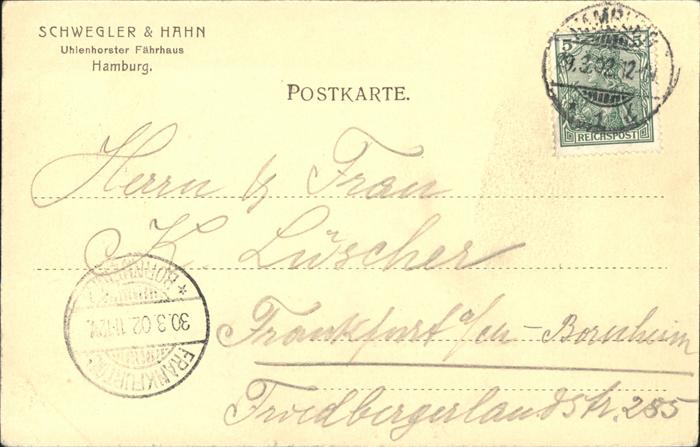 SCHWEGLER & HAHN
Uhlenhorster Fährhaus
Hamburg.
HAMBURG
5 5
9.3.02.12-1N.
* 1 *
REICHSPOST
POSTKARTE.
Herrn & Frau
K. Lüscher
Frankfurt a/M - Bornheim
Friedbergerlandstr. 285
* BORNHEIM
30.3.02. 11-12V.
FRANKFURT